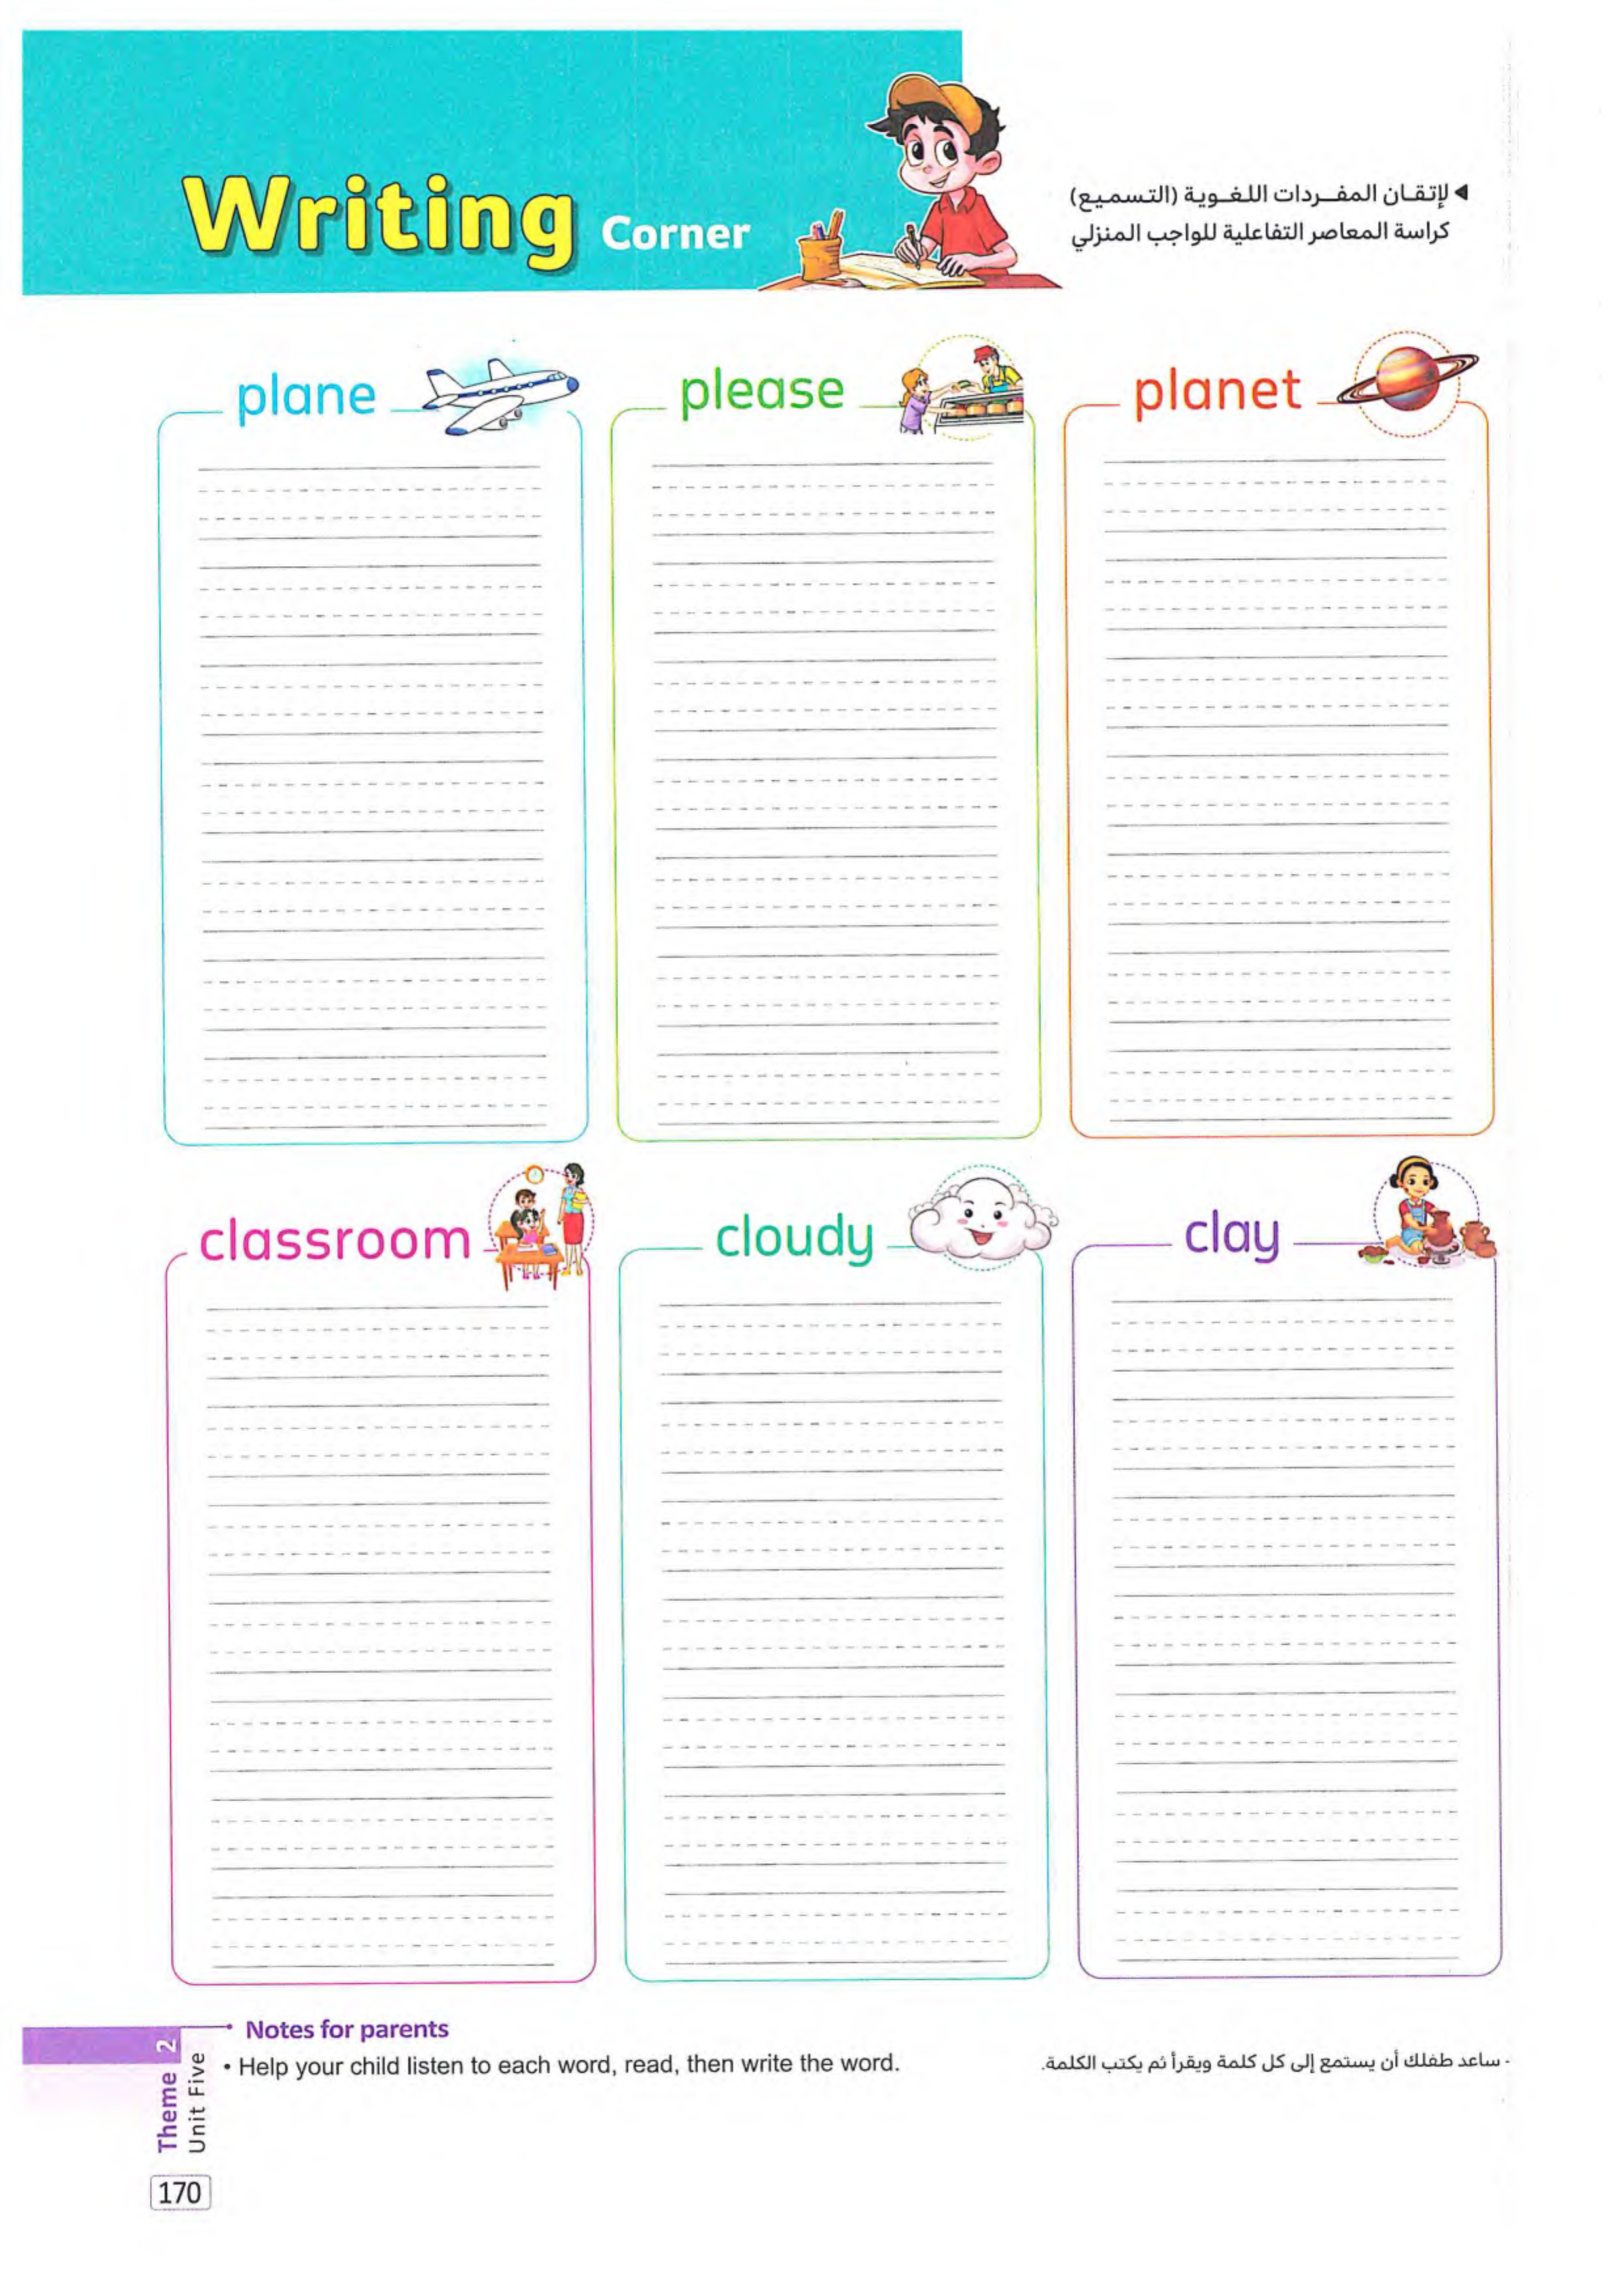 Writing Corner
◄ لإتقـان المفـردات اللغـوية (التسميع)
كراسة المعاصر التفاعلية للواجب المنزلي
plane
please
planet
classroom
cloudy
clay
Notes for parents
• Help your child listen to each word, read, then write the word.
- ساعد طفلك أن يستمع إلى كل كلمة ويقرأ ثم يكتب الكلمة.
Theme 2
Unit Five
170